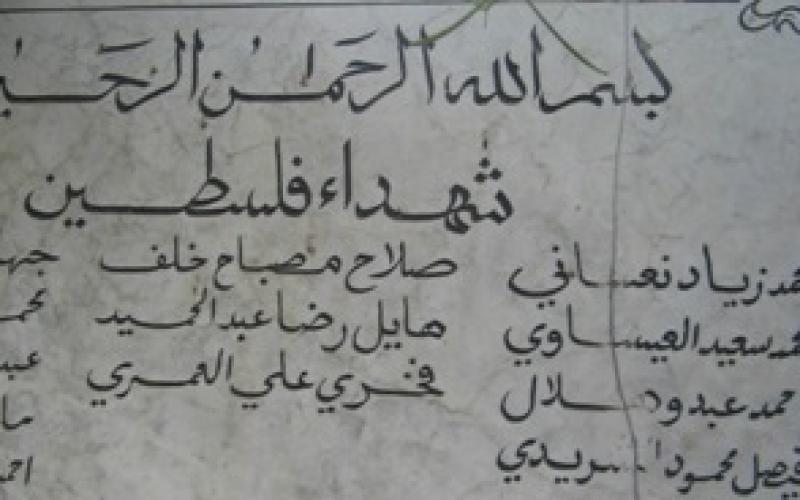 بسم الله الرحمن الرحيـ
شهداء فلسطين
ـمد زياد نعساني صلاح مصباح خلف جهـ
ـمد سعيد العيساوي هايل رضا عبد الحميد محمـ
حمد عبدو فخري علي العمري عبـ
فيصل محمود ما
احمـ